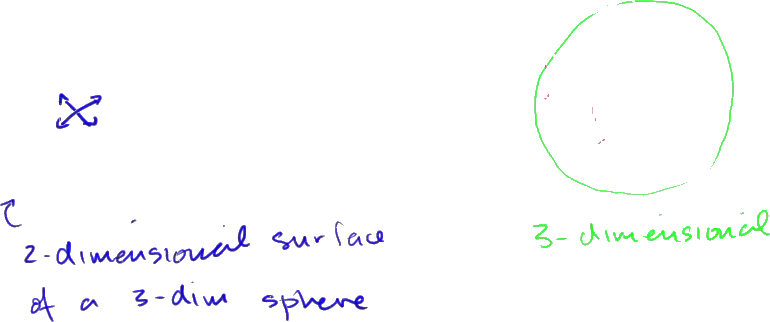 2-dimensional surface
of a 3-dim sphere
3-dimensional